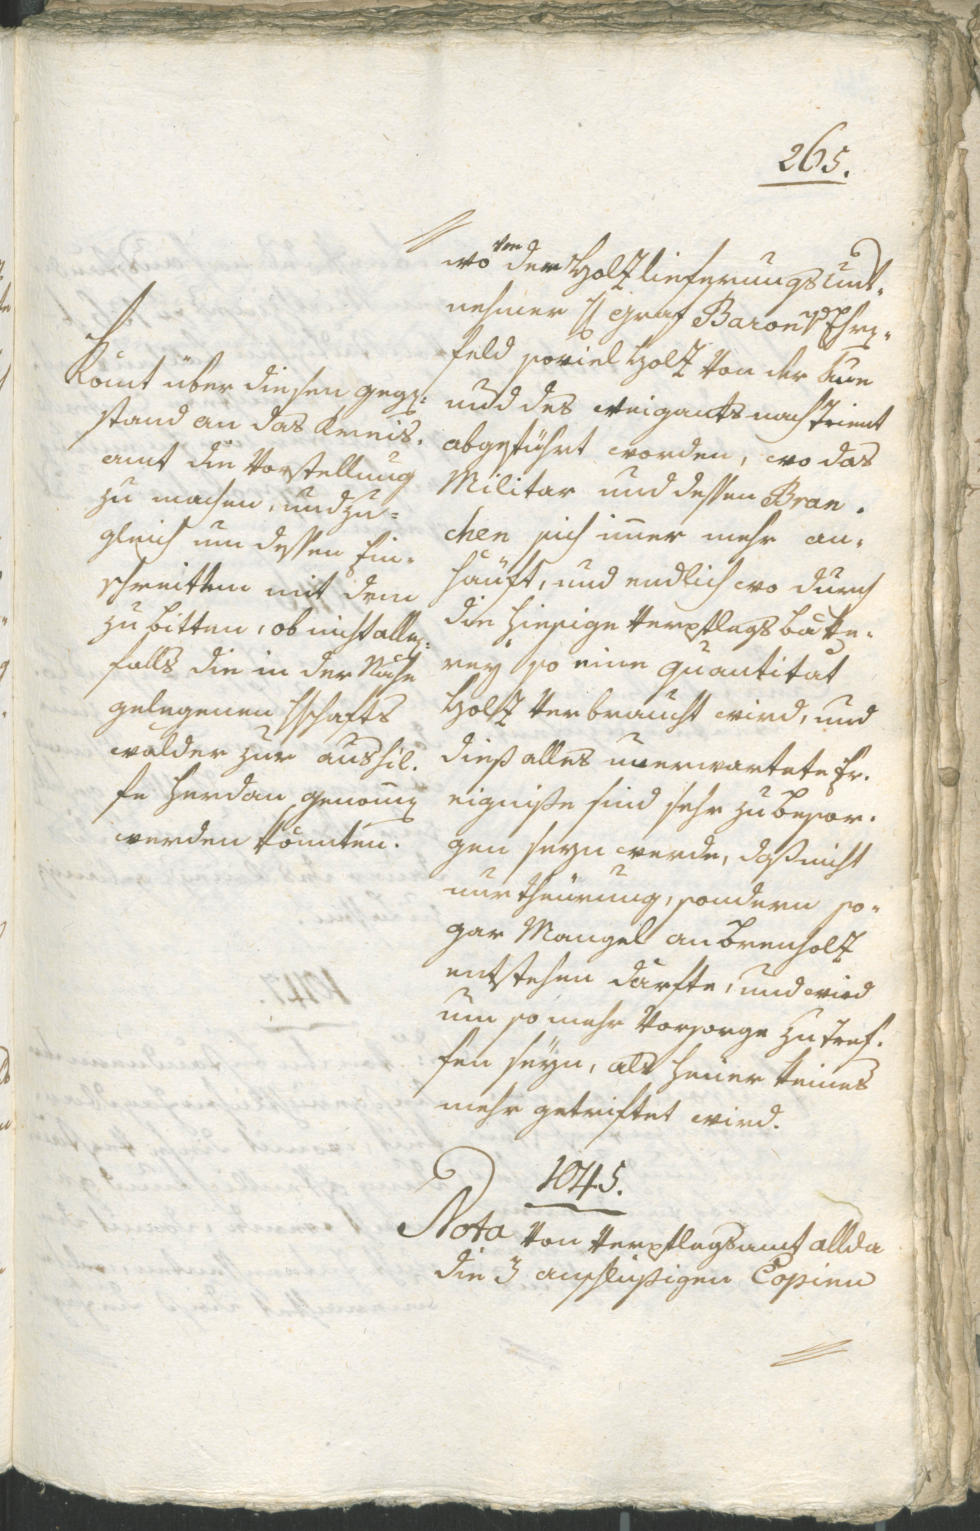 265.
Kömt über diesen gegen=
stand an das Kreis.
amt die Vorstellung
zu machen, und zu=
gleich um dessen Ein=
schreitten mit dem
zu bitten, ob nicht allen=
falls die in der Nähe
gelegenen Hschafts
walder zur aushil.
fe herdan genomen
werden könnten.
wo von der Holzlieferungs Unt.
nehmer Graf Baron v
feld soviel Holz von der
und des weigants nach Trient
abgeführt worden, wo das
Militar und dessen Bran.
chen sich imer mehr an=
häuft, und endlich wo durch
die hiesige Verpflegs bäke.
rey so eine quantitat
Holz verbraucht wird, und
dieß alles unerwartete Er.
eigniße sind sehr zu besor.
gen seyn werde, daß nicht
nur theürung, sondern so=
gar Mangel an brenholz
entstehen därfte, und wird
um so mehr Vorsorge zu tref.
fen seyn, als heuer keines
mehr getriftet wird.
1045.
Nota von Verpflegsamt allda
die 3 anschlüßigen Copien